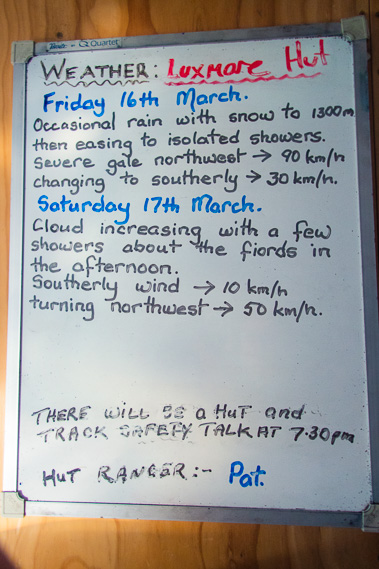 Quartet
WEATHER: Luxmore Hut
Friday 16th March.
Occasional rain with snow to 1300m
then easing to isolated showers.
Severe gale northwest → 90 km/h
changing to southerly → 30 km/h.
Saturday 17th March.
Cloud increasing with a few
showers about the fiords in
the afternoon.
Southerly wind → 10 km/h
turning northwest → 50 km/h.
THERE WILL BE a HuT and
TRACK SAFETY TALK AT 7.30pm
HuT RANGER:- Pat.